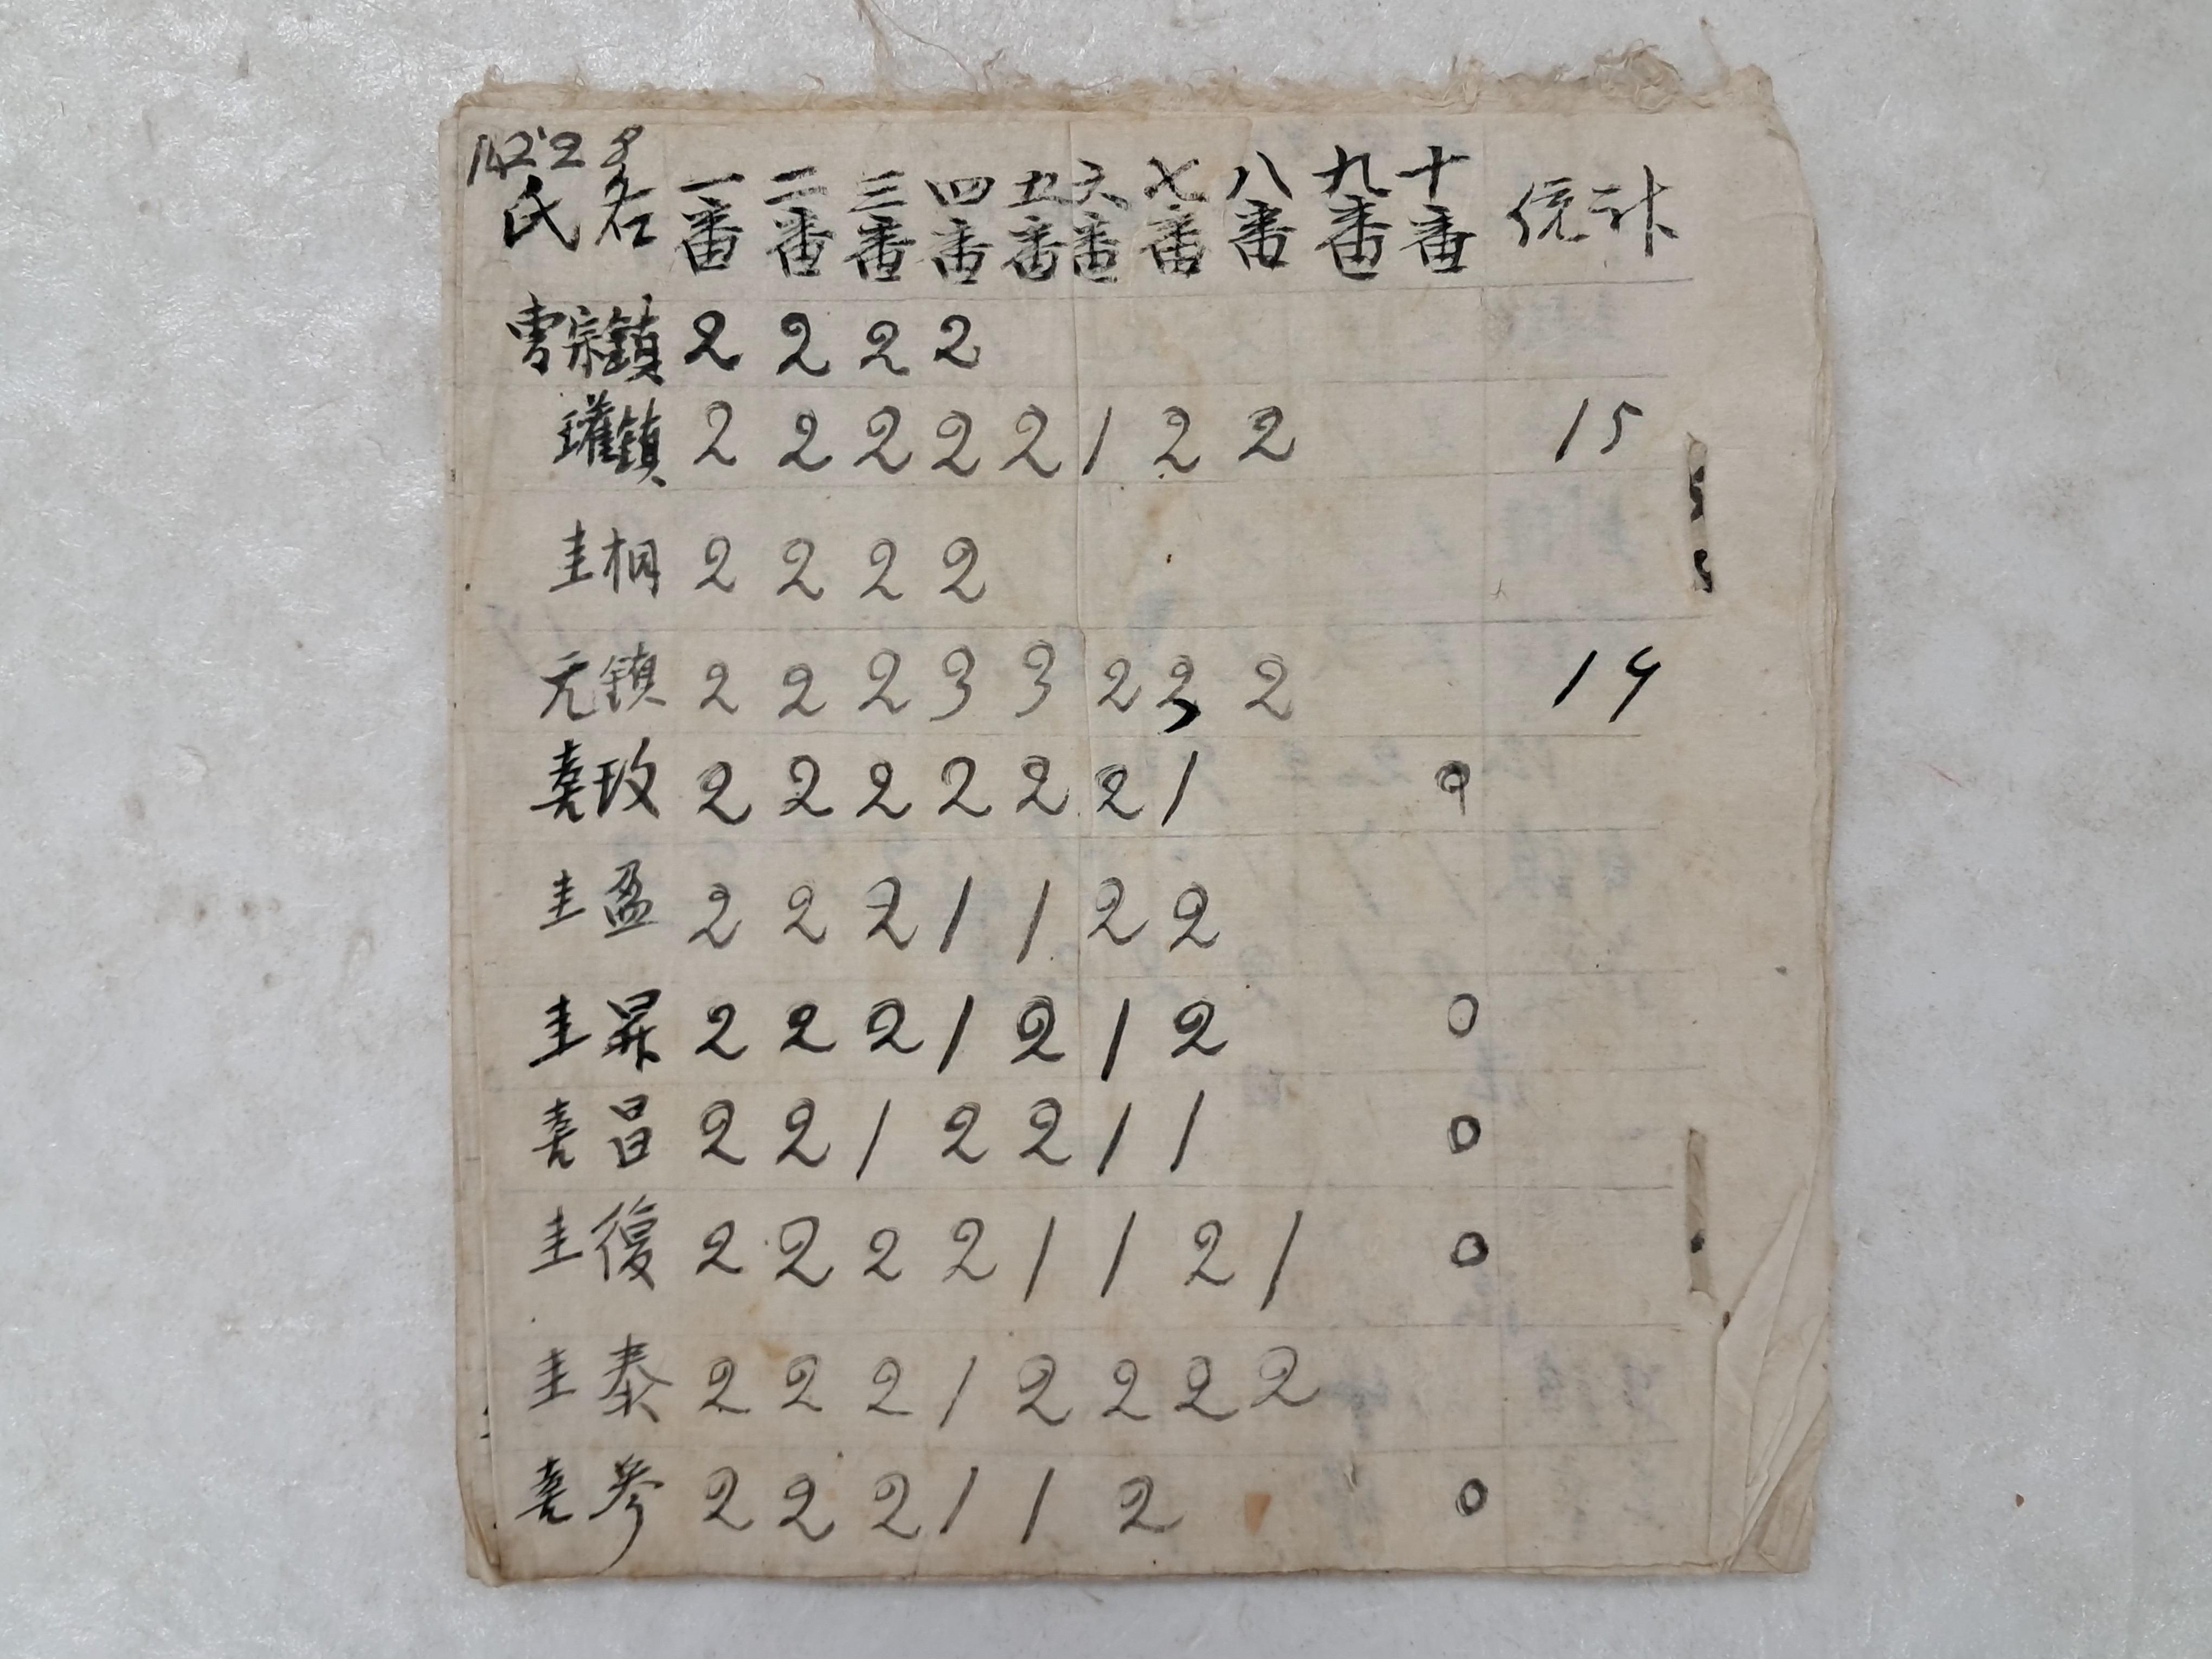 氏名 一番 二番 三番 四番 五番 六番 七番 八番 九番 十番 統計
曺宗鎮 2 2 2 2
瓘鎮 2 2 2 2 2 1 2 2 15
圭桐 2 2 2 2
元鎮 2 2 2 3 3 2 2 19
喜玫 2 2 2 2 2 2 1
圭盈 2 2 2 1 1 2 2
圭昇 2 2 2 1 2 1 2 0
喜昌 2 2 1 2 2 1 1 0
圭復 2 2 2 2 1 1 2 1 0
圭泰 2 2 2 1 2 2 2 2
喜參 2 2 2 1 1 2 0